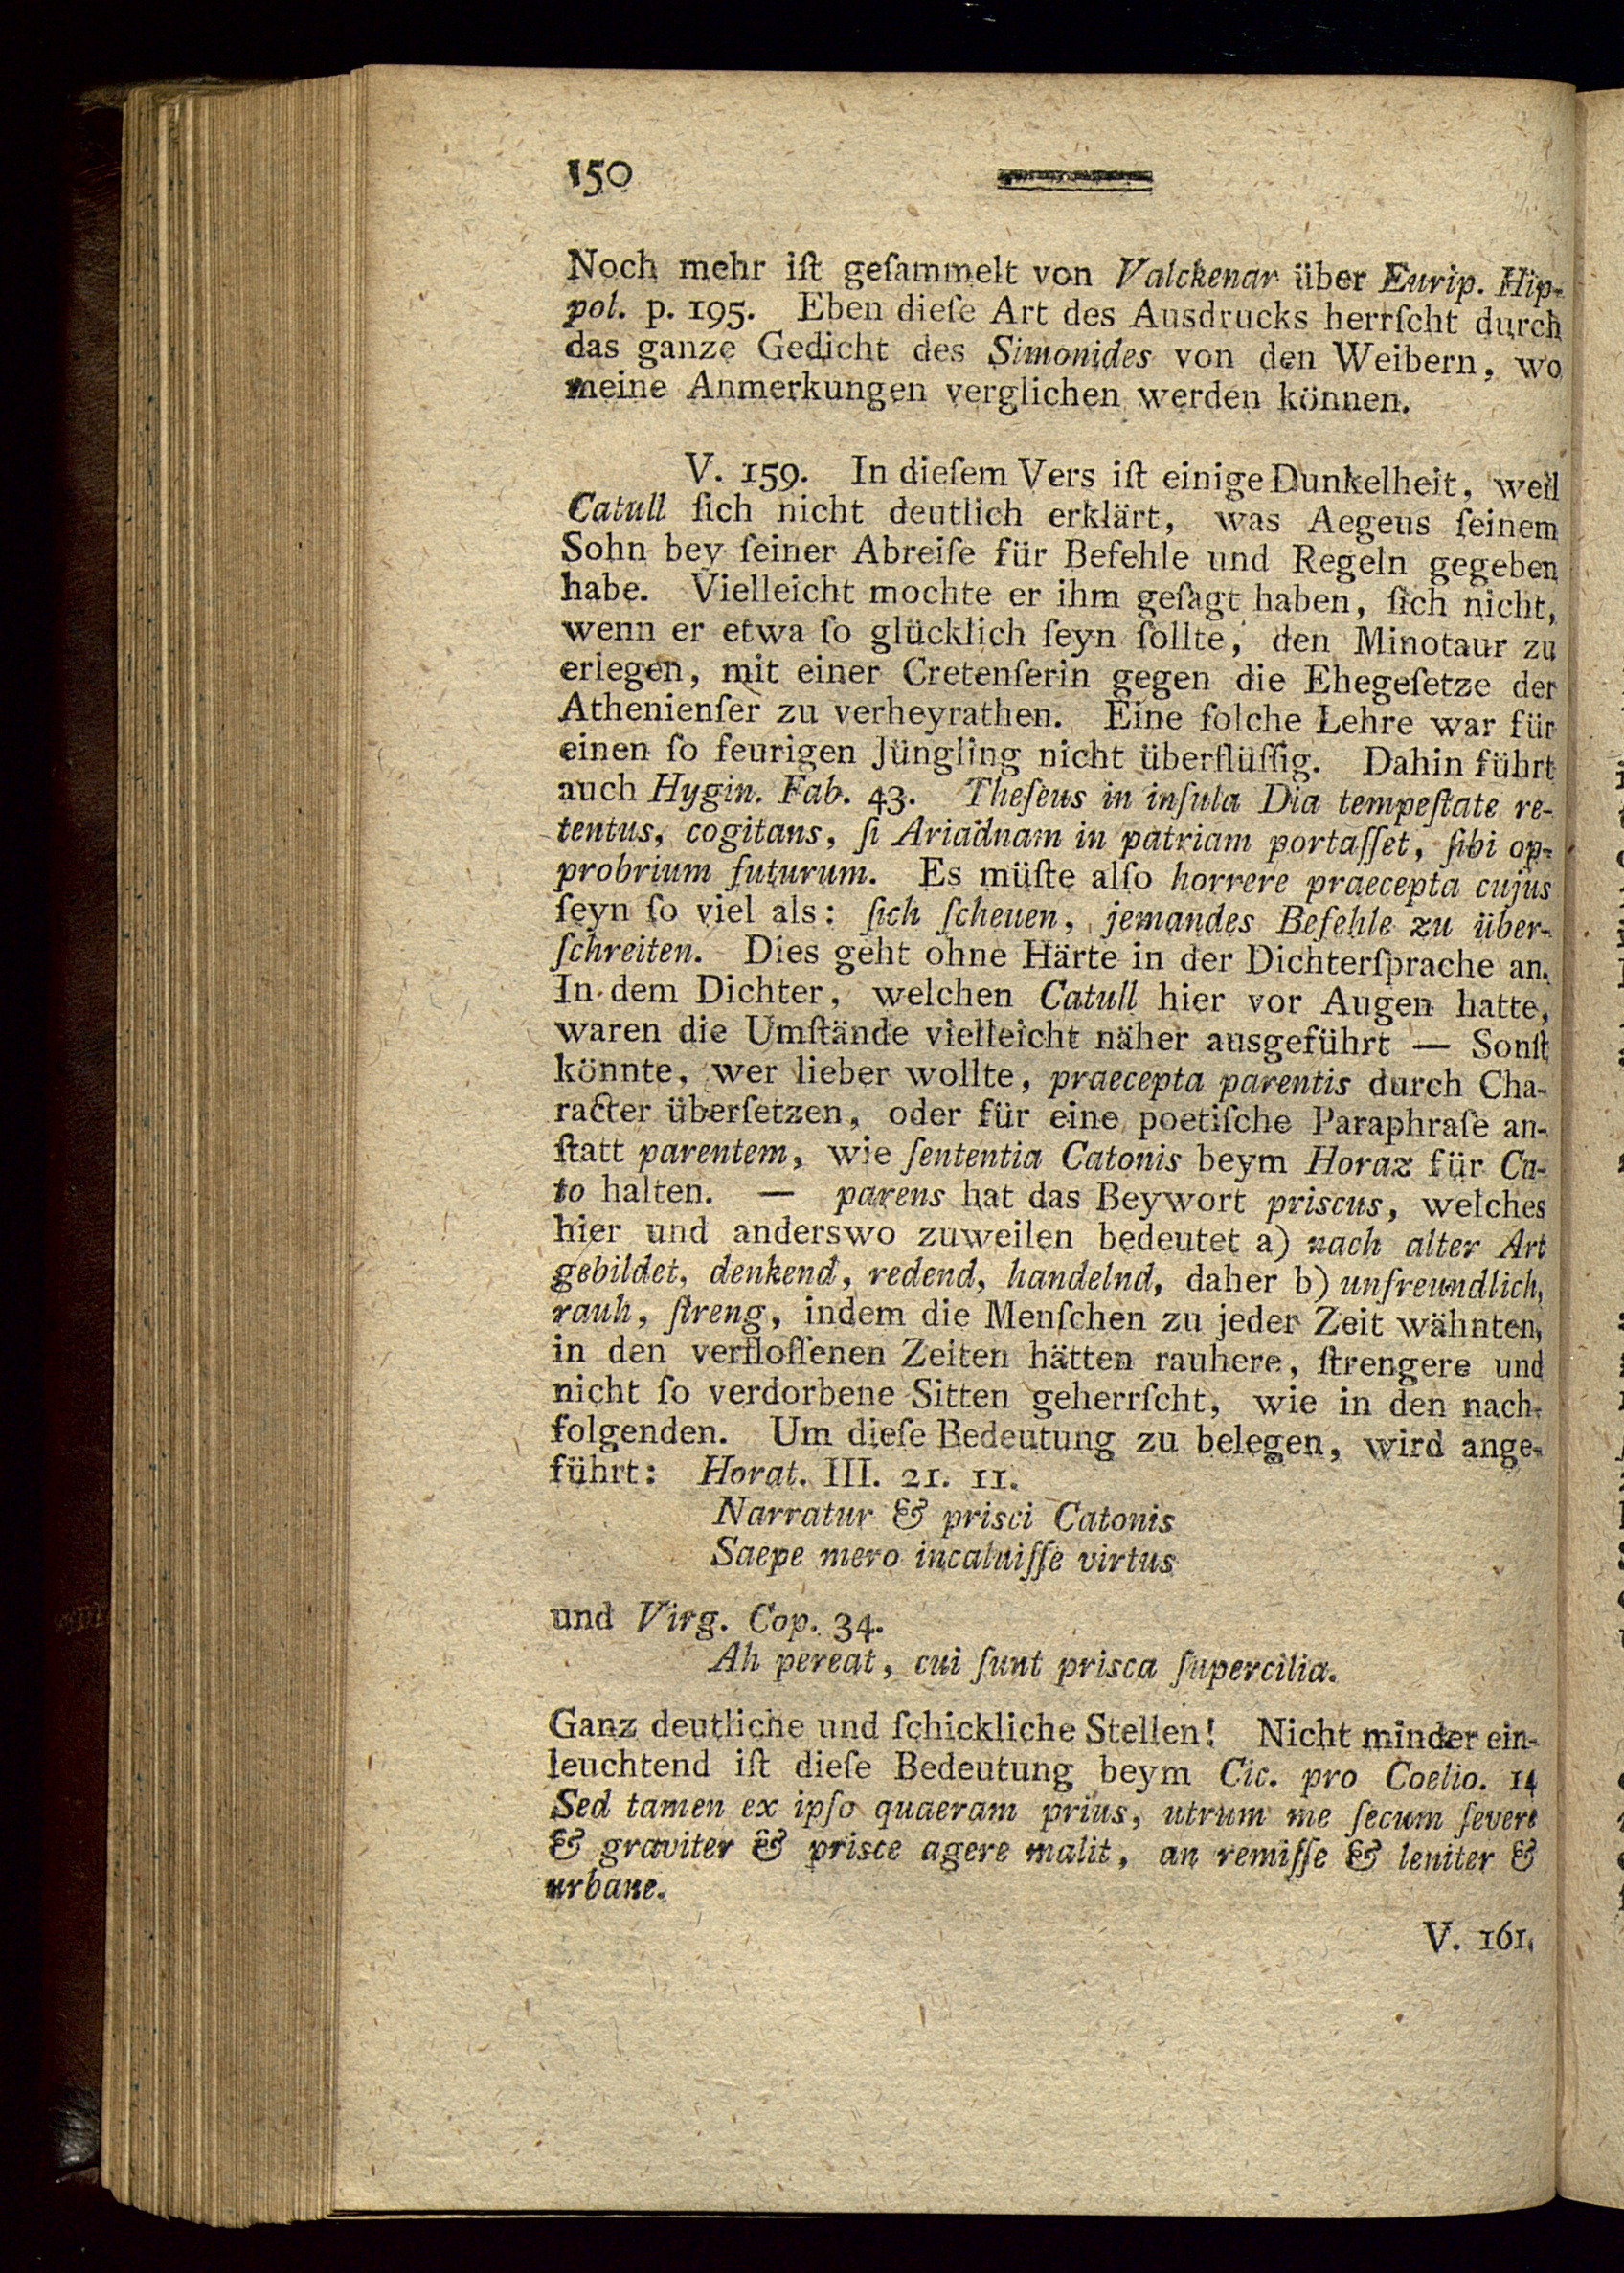 150
Noch mehr iſt geſammelt von Valckenar über Eurip. Hip-
pol. p. 195. Eben dieſe Art des Ausdrucks herrſcht durch
das ganze Gedicht des Simonides von den Weibern, wo
meine Anmerkungen verglichen werden können.
V. 159. In dieſem Vers iſt einige Dunkelheit, weil
Catull ſich nicht deutlich erklärt, was Aegeus ſeinem
Sohn bey ſeiner Abreiſe für Befehle und Regeln gegeben
habe. Vielleicht mochte er ihm geſagt haben, ſich nicht,
wenn er etwa ſo glücklich ſeyn ſollte, den Minotaur zu
erlegen, mit einer Cretenſerin gegen die Ehegeſetze der
Athenienſer zu verheyrathen. Eine ſolche Lehre war für
einen ſo feurigen Jüngling nicht überflüſſig. Dahin führt
auch Hygin. Fab. 43. Theſeus in inſula Dia tempeſtate re-
tentus, cogitans, ſi Ariadnam in patriam portaſſet, ſibi op-
probrium futurum. Es müſte alſo horrere praecepta cujus
ſeyn ſo viel als: ſich ſcheuen, jemandes Befehle zu über-
ſchreiten. Dies geht ohne Härte in der Dichterſprache an.
In dem Dichter, welchen Catull hier vor Augen hatte,
waren die Umſtände vielleicht näher ausgeführt — Sonſt
könnte, wer lieber wollte, praecepta parentis durch Cha-
racter überſetzen, oder für eine poetiſche Paraphraſe an-
ſtatt parentem, wie ſententia Catonis beym Horaz für Ca-
to halten. — parens hat das Beywort priscus, welches
hier und anderswo zuweilen bedeutet a) nach alter Art
gebildet, denkend, redend, handelnd, daher b) unfreundlich,
rauh, ſtreng, indem die Menſchen zu jeder Zeit wähnten,
in den verfloſſenen Zeiten hätten rauhere, ſtrengere und
nicht ſo verdorbene Sitten geherrſcht, wie in den nach-
folgenden. Um dieſe Bedeutung zu belegen, wird ange-
führt: Horat. III. 21. 11.
Narratur & prisci Catonis
Saepe mero incaluiſſe virtus
und Virg. Cop. 34.
Ah pereat, cui ſunt prisca ſupercilia.
Ganz deutliche und ſchickliche Stellen! Nicht minder ein-
leuchtend iſt dieſe Bedeutung beym Cic. pro Coelio. 14
Sed tamen ex ipſo quaeram prius, utrum me ſecum ſevere
& graviter & prisce agere malit, an remiſſe & leniter &
urbane.
V. 161.